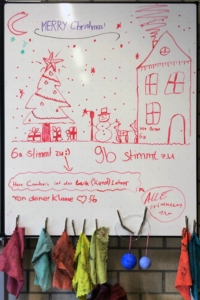 MERRY Christmas!
6a stimmt zu :)
9b stimmt zu
Herr ist der beste (Kunst) Lehrer
von deiner Klasse ♡ 5b
ALLE
stimmen
zu